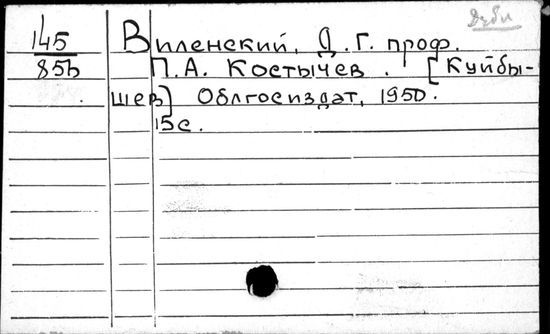 145
85ъ
Виленский, Д.Г. проф.
П.А. Костычев. [Куйбы-
шев] Облгосиздат, 1950.
15с.